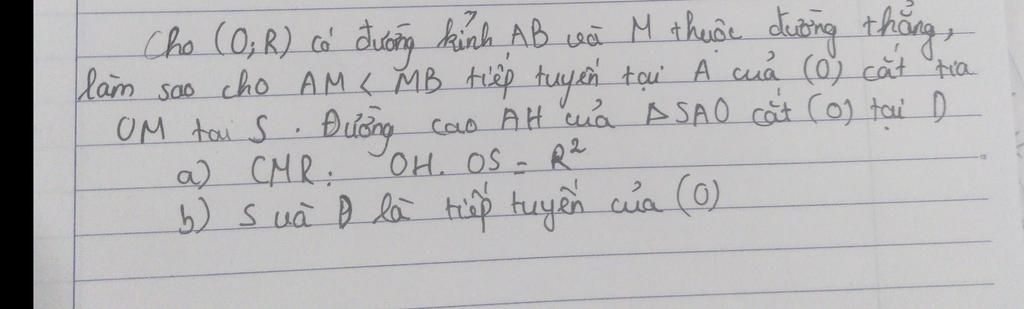 Cho (O;R) có đường kính AB và M thuộc đường thẳng,
làm sao cho AM < MB tiếp tuyến tại A của (O) cắt tia
OM tại S. Đường cao AH của ΔSAO cắt (O) tại D
a) CMR: OH. OS = R²
b) S và D là tiếp tuyến của (O)